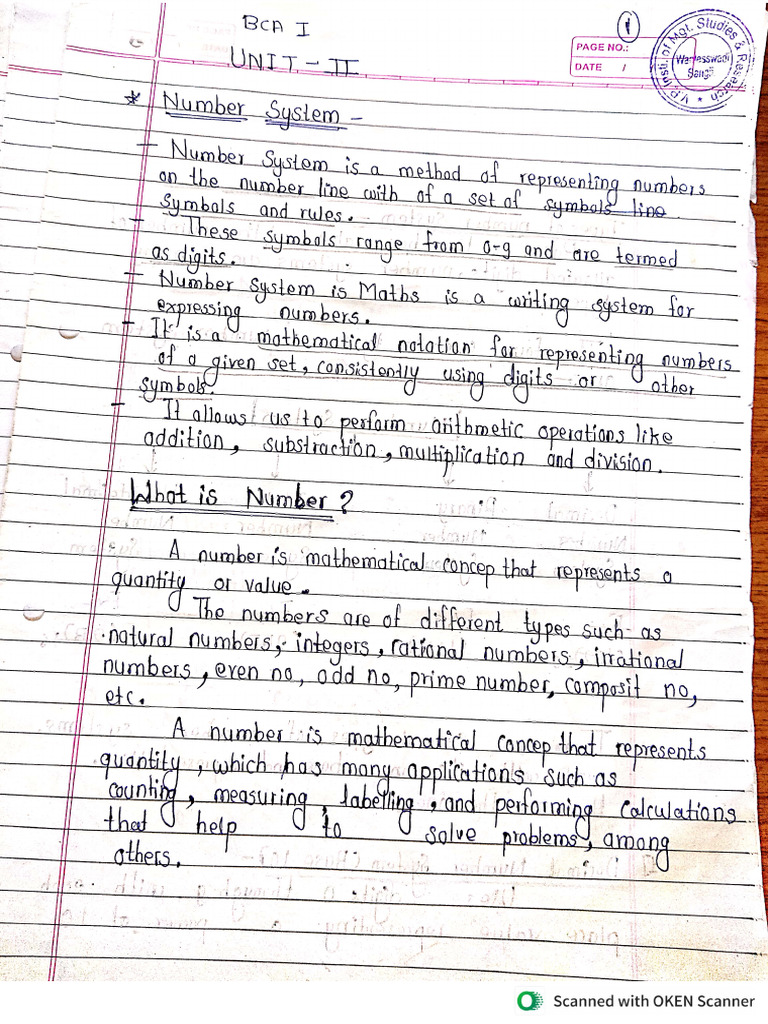 BCA I
1
UNIT - II
PAGE NO.:
DATE /
V.P. Insti. of Mgt. Studies & Research
Sangli
* Number System -
- Number System is a method of representing numbers
on the number line with of a set of symbols line
symbols and rules.
- These symbols range from 0-9 and are termed
as digits.
- Number System is Maths is a writing system for
expressing numbers.
- It is a mathematical notation for representing numbers
of a given set, consistently using digits or other
symbols.
- It allows us to perform arithmetic operations like
addition, substraction, multiplication and division.
What is Number?
A number is mathematical concep that represents a
quantity or value.
The numbers are of different types such as
natural numbers, integers, rational numbers, irrational
numbers, even no, odd no, prime number, composit no,
etc.
A number is mathematical concep that represents
quantity, which has many applications such as
counting, measuring, labelling, and performing calculations
that help to solve problems, among
others.
Scanned with OKEN Scanner